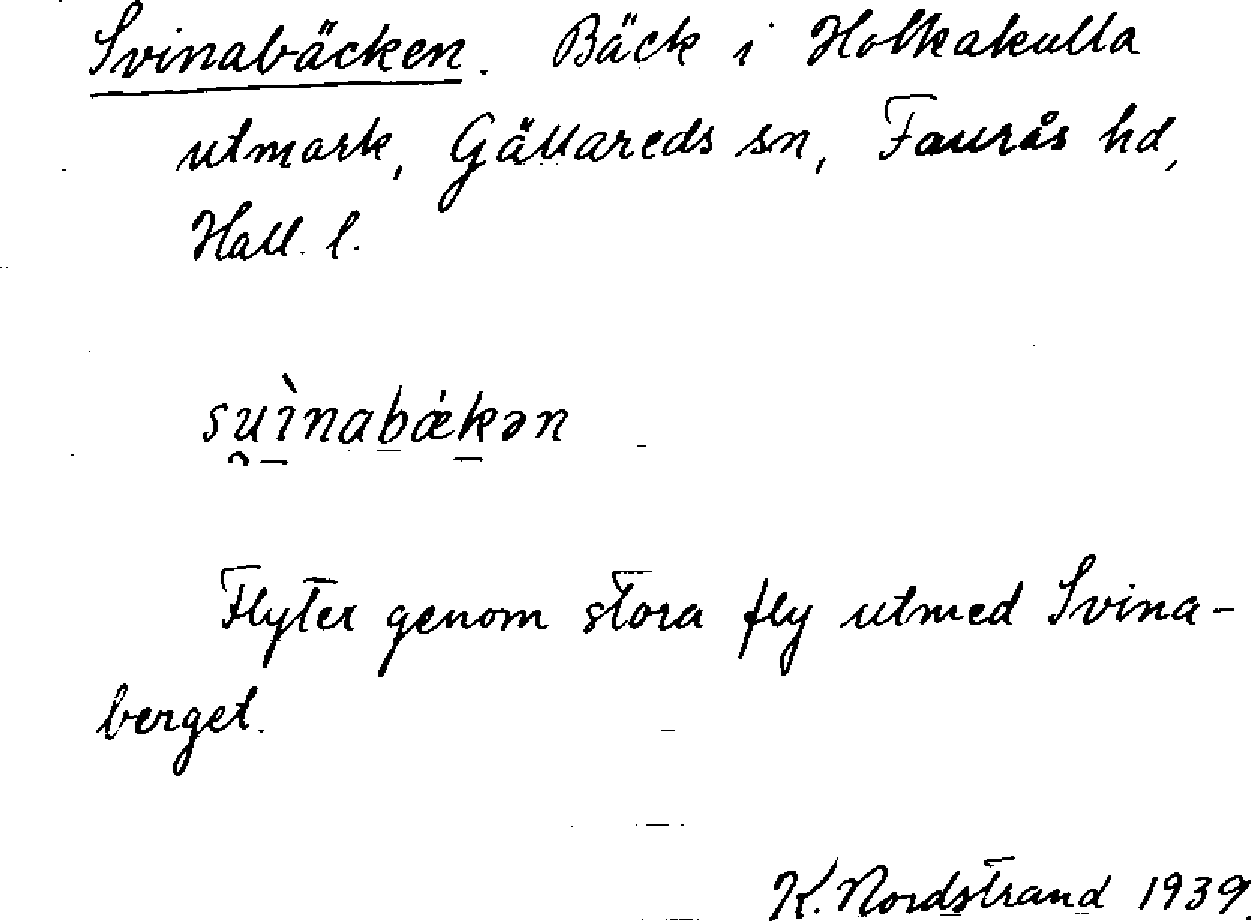 Svinabäcken. Bäck i Holkakulla
utmark, Gällareds sn, Faurås hd,
Hall. l.
su̯ìnabǽkən
Flyter genom stora fly utmed Svina-
berget.
K. Nordstrand 1939.